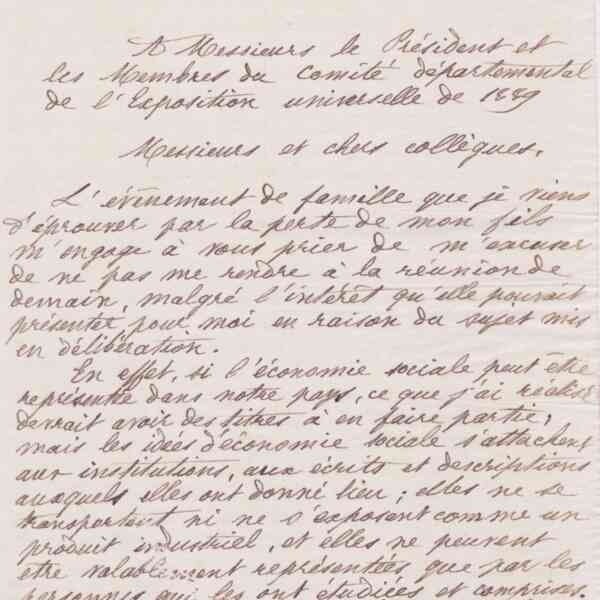 A Messieurs le Président et
les Membres du Comité départemental
de l'Exposition universelle de 1889
Messieurs et chers collègues,
L'évènement de famille que je viens
d'éprouver par la perte de mon fils
m'engage à vous prier de m'excuser
de ne pas me rendre à la réunion de
demain, malgré l'intérêt qu'elle pouvait
présenter pour moi en raison du sujet mis
en délibération.
En effet, si l'économie sociale peut être
représentée dans notre pays, ce que j'ai réalisé
devrait avoir des titres à en faire partie,
mais les idées d'économie sociale s'attachent
aux institutions, aux écrits et descriptions
auxquels elles ont donné lieu ; elles ne se
transportent ni ne s'exposent comme un
produit industriel, et elles ne peuvent
être valablement représentées que par les
personnes qui les ont étudiées et comprises.